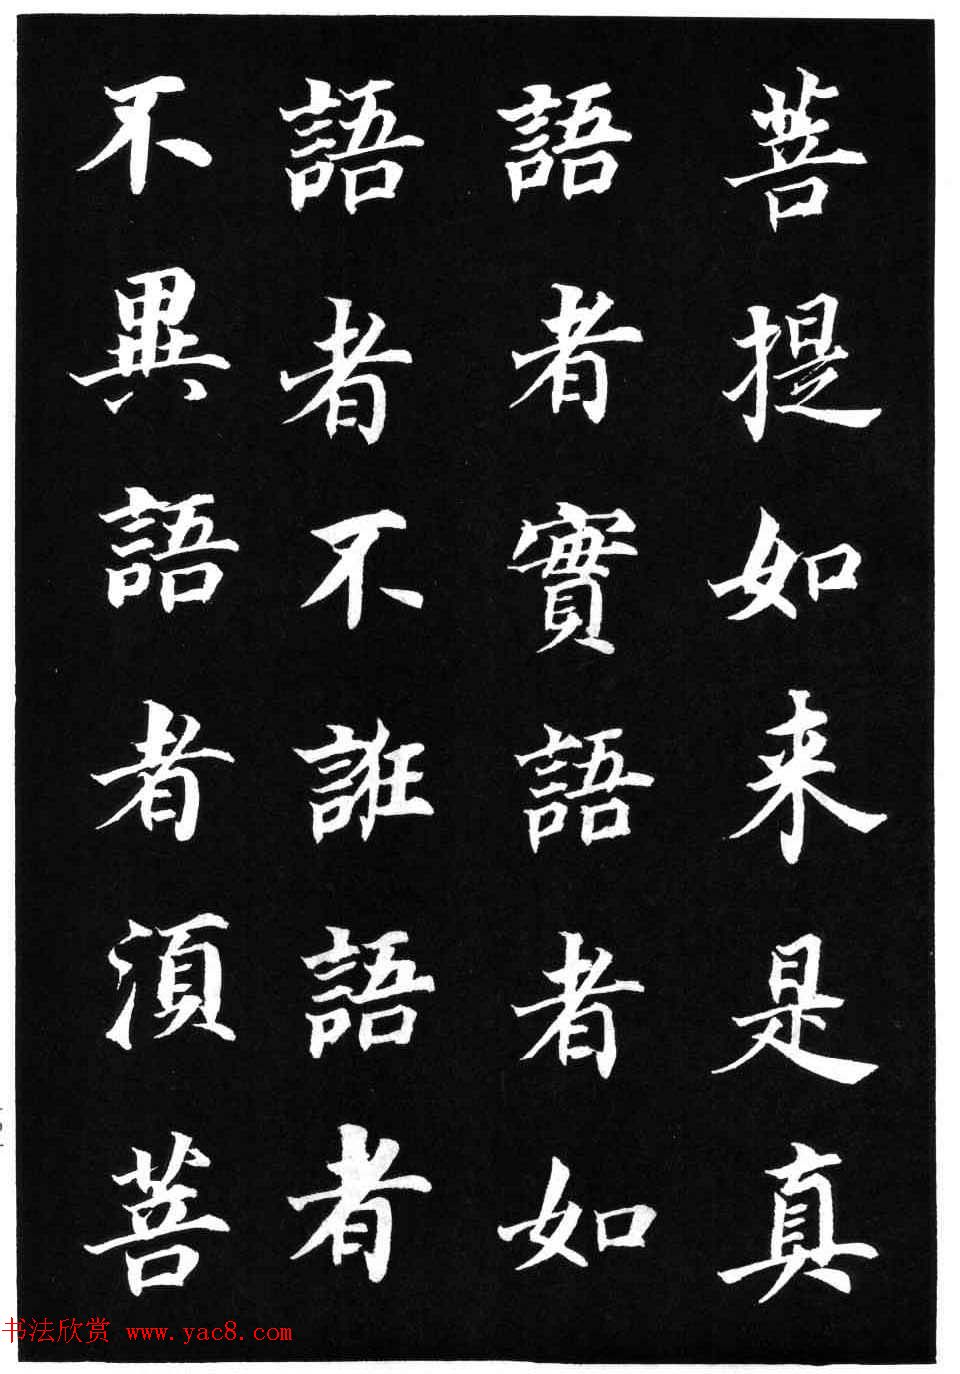 菩提如来是真
語者實語者如
語者不誑語者
不異語者須菩
书法欣赏 www.yac8.com